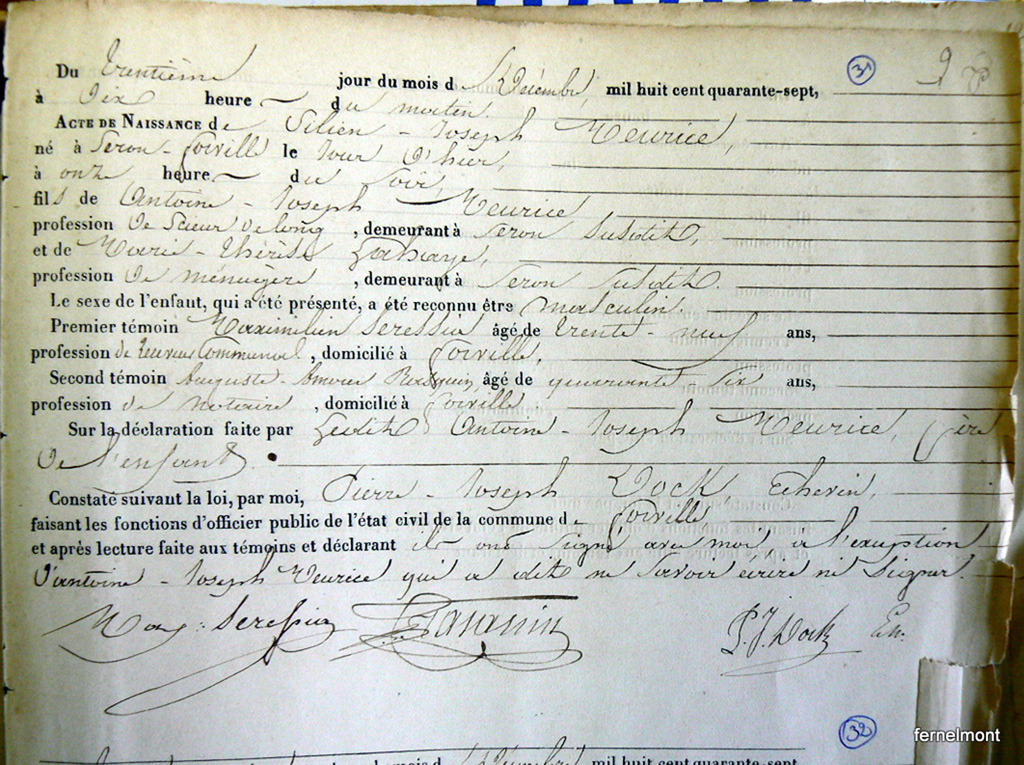 31
Du trentième jour du mois de Décembre, mil huit cent quarante-sept,
à Dix heure du matin.
ACTE DE NAISSANCE de Joseph Meurice,
né à Seron-Forville le Jour d'hier,
à onze heure du soir,
fils de Antoine-Joseph Meurice
profession de Scieur de long, demeurant à Seron susdit,
et de Marie-Thérèse Lahaye,
profession de ménagère, demeurant à Seron susdit.
Le sexe de l'enfant, qui a été présenté, a été reconnu être masculin.
Premier témoin Maximilien Seressia âgé de trente-neuf ans,
profession de receveur Communal, domicilié à Forville,
Second témoin Auguste-Amour âgé de quarante six ans,
profession de notaire, domicilié à Forville
Sur la déclaration faite par Ledit Antoine-Joseph Meurice, Père
de l'enfant.
Constaté suivant la loi, par moi, Pierre-Joseph Dock, Echevin,
faisant les fonctions d'officier public de l'état civil de la commune de Forville
et après lecture faite aux témoins et déclarant ils ont signé avec moi à l'exception
d'antoine-Joseph Meurice qui a dit ne savoir écrire ni signer.
Max: Seressia P.J. Dock Ech.
32
fernelmont
du mois de Décembre mil huit cent quarante-sept